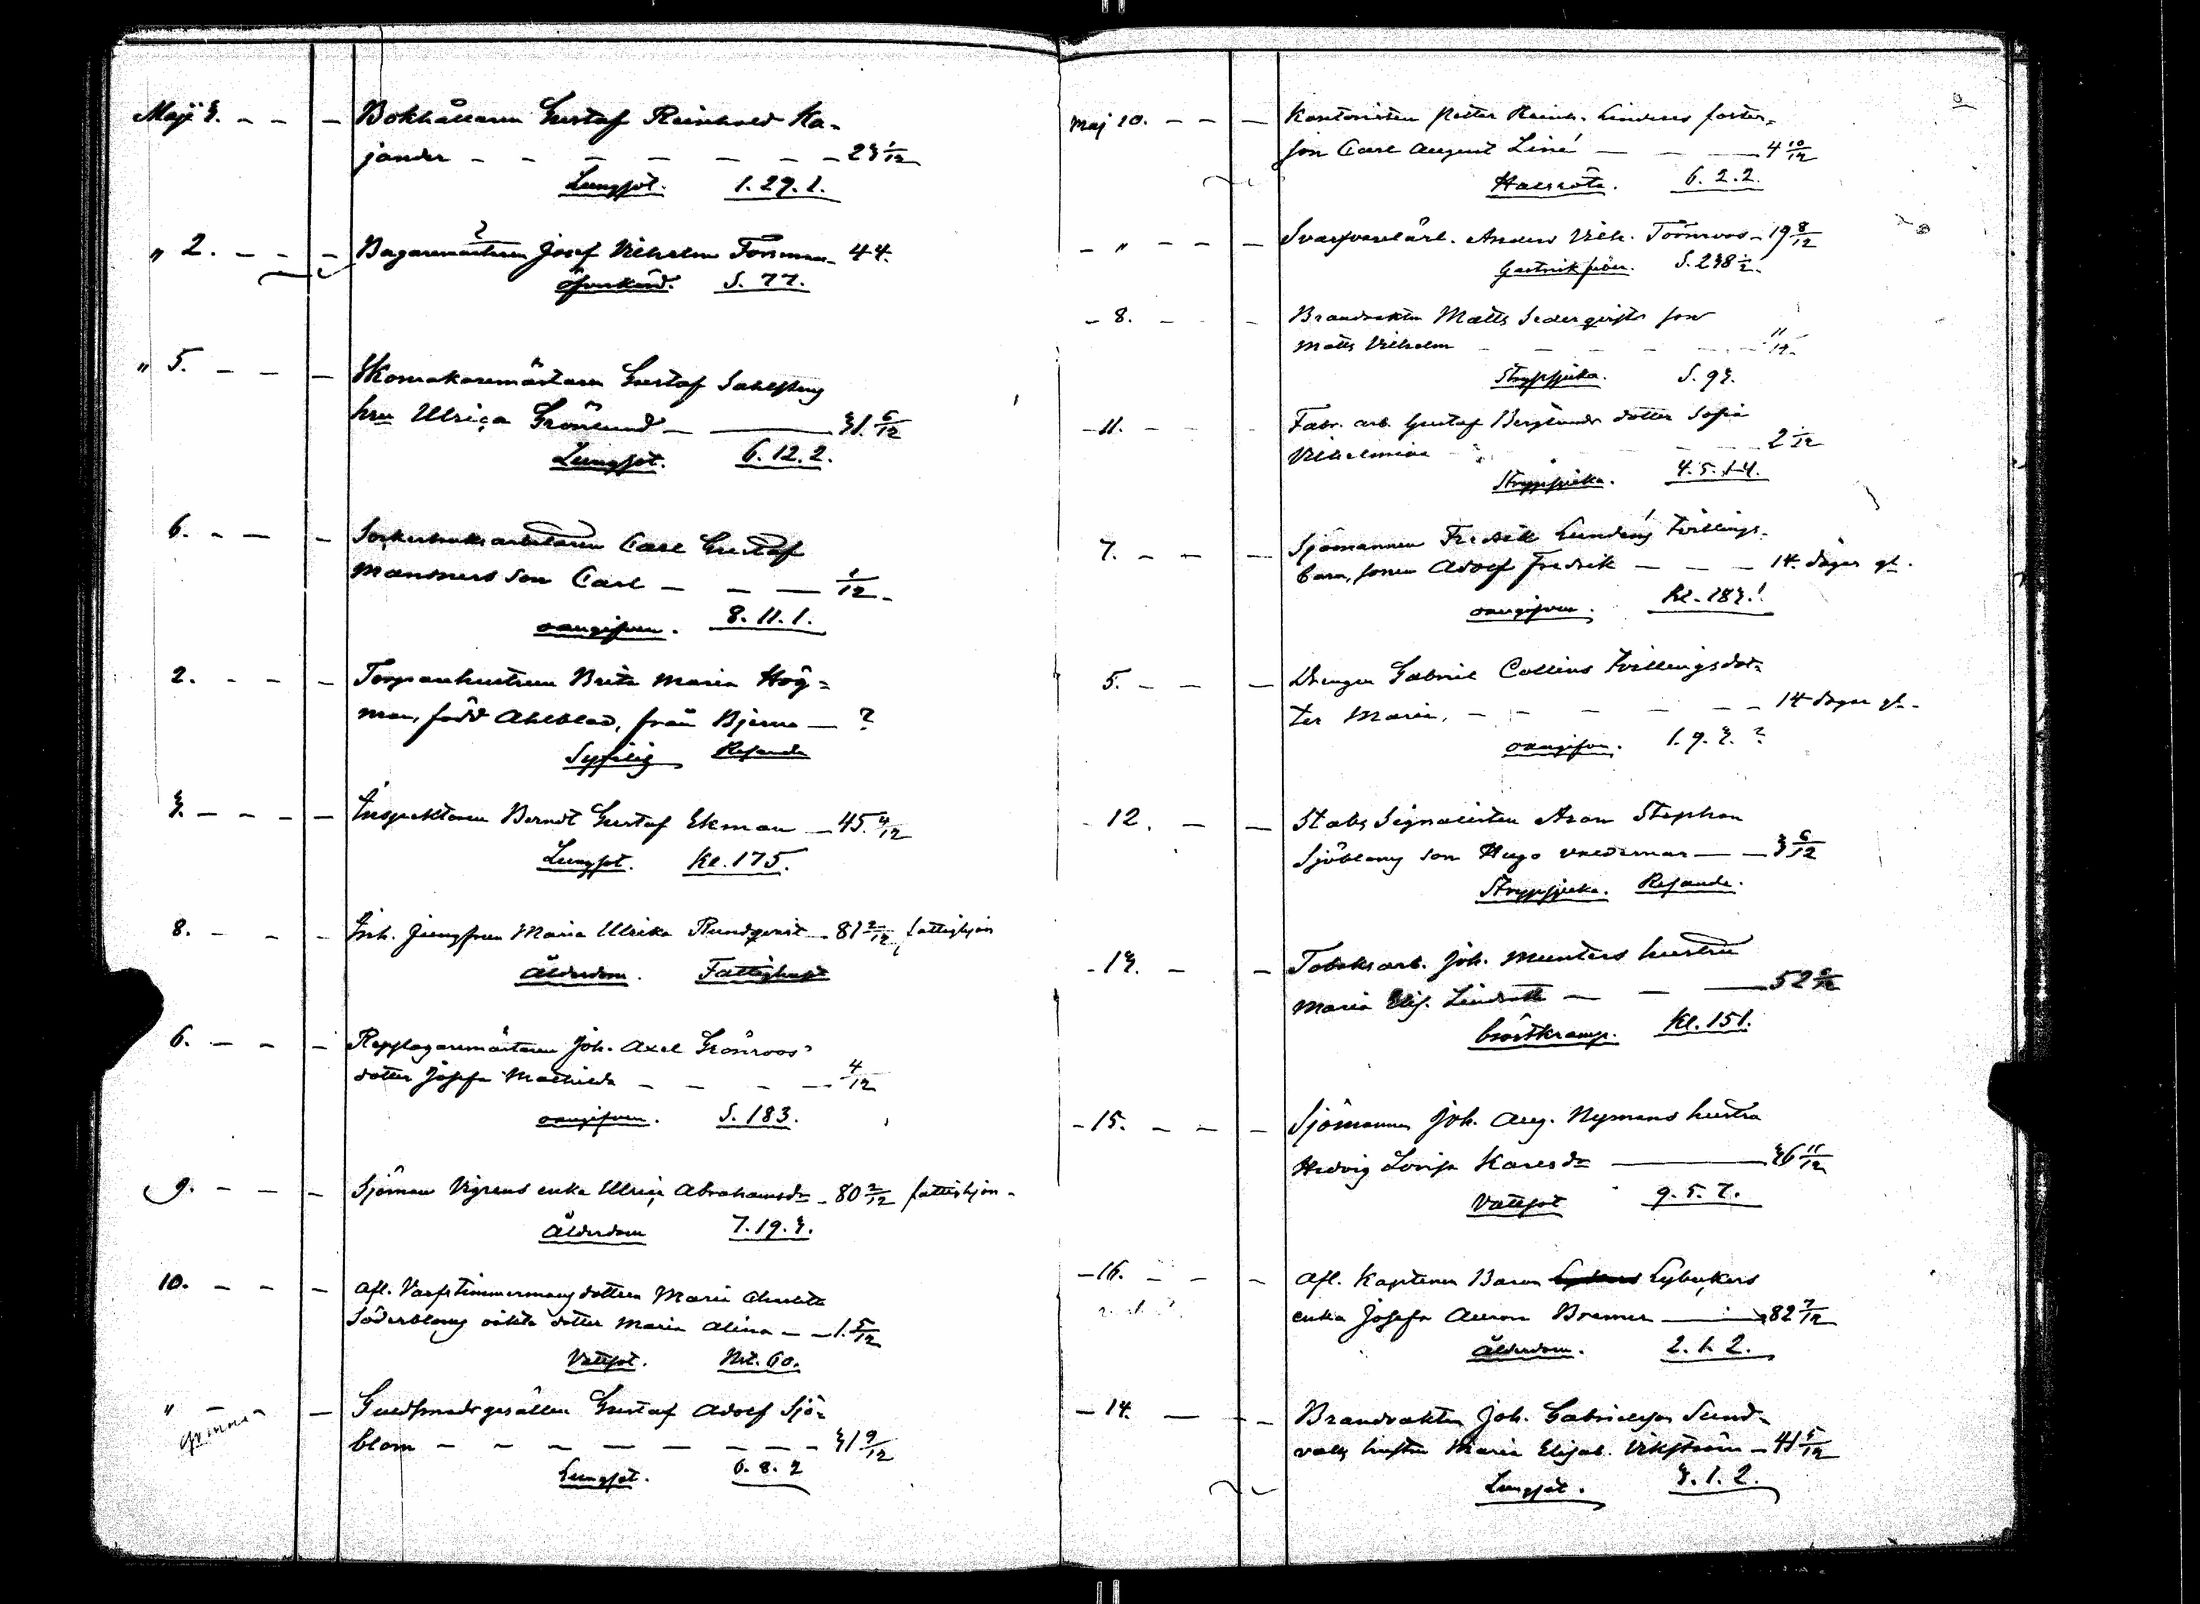 Maji 3. - - - Bokhållaren Gustaf Reinhold Ka-
jander - - - - - - - 23 1/12
Lungsot. 1.29.1.
" 2. - - - Bagaremästaren Josef Vilhelm Törnman - 44.
?
S. 77.
" 5. - - - Skomakaremästaren Gustaf Sahlsteng
hru Ulrica Grönlund - 31 6/12
Lungsot. 6.12.2.
6. - - - Sockerbruksarbetaren Carl Gustaf
Mansners son Carl - - - 1/12
oangifven. 8.11.1.
2. - - - Torparehustrun Brita Maria Hög=
man, född Ahlblad, från Bjerno - ?
Syfilis Resande
3. - - - Inspektoren Berndt Gustaf Ekman - 45 4/12
Lungsot. Kl. 175.
8. - - - Inh. Jungfrun Maria Ulrika Rundqvist - 81 2/12 fattighjon
Ålderdom. Fattighuset
6. - - - Repslagaremästaren Joh. Axel Grönroos
dotter Josefa Mathilda - - - - 4/12
oangifven. S. 183.
9. - - - Sjöman Vigrens enka Ulrica Abrahamsdr - 80 2/12 fattighjon -
Ålderdom 7.19.3.
10. - - - Afl. Varfstimmermans dottren Maria Charlotta
Söderbloms oäkta dotter Maria Alina - - 1.5/12
Vattsot. Nrt. 60.
" - - Guldsmedsgesällen Gustaf Adolf Sjö-
blom - - - - - - - - 31 9/12
Lungsot. 6.8.2
Maj 10. - - - Kantoristen Petter Reinh. Linderos foster-
son Carl August Liné - - - 4 10/12
Halsröta. 6.2.2.
- " - - - Svarfvarelärl. Anders Vilh. Törnroos - 19 8/12
Gastrisk feber. S. 238 1/2.
- 8. - - Brandvakten Matts Sederqvists son
Matts Vilhelm - - - - - - 11/12
Strypsjuka. S. 93.
- 11. - - - Fabr. arb. Gustaf Berglunds dotter Sofia
Vilhelmina - - - 2 1/12
Strypsjuka. 4.5.14.
7. - - - Sjömannen Fredrik Lundens Tvillings-
barn, sonen Adolf Fredrik - - - 14 dagar gl.
oangifven. Kl. 183.
5. - - - Drengen Gabriel Collins Tvillingsdot-
ter Maria, - - - - - - 14 dagar gl.
oangifven. 1.9.3. ?
- 12. - - Stabs Signalisten Aron Stephan
Sjöbloms son Hugo Valdemar - - 3 6/12
Strypsjuka. Resande.
- 13. - - Tobaksarb. Joh. Munters hustru
Maria Elis. Lindroth - - - 52
bröstkramp. Kl. 151.
- 15. - - - Sjömannen Joh. Aug. Nymans hustru
Hedvig Lovisa Karlsdr - 36 11/12
Vattsot 9.5.7.
- 16. - - - Afl. Kaptenen Baron Lybeckers
enka Josefa Aurora Bremer - 82 7/12
Ålderdom. 2.1.2.
- 14. - - - Brandvakten Joh. Gabrielsson Sund-
valls hustru Maria Elisab. Vikström - 41 5/12
Lungsot. 3.1.2.